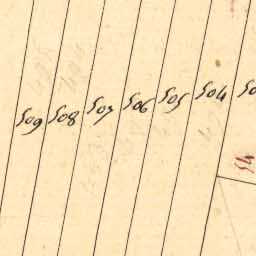 509 508 507 506 505 504
54